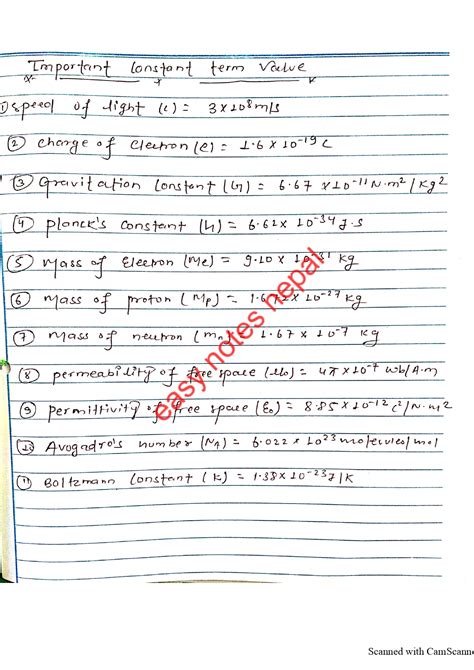 Important Constant term Value
① Speed of light (c) = 3×10⁸m/s
② charge of electron (e) = 1.6 × 10⁻¹⁹ C
③ Gravitation Constant (G) = 6.67 × 10⁻¹¹ N.m²/kg²
④ planck's constant (h) = 6.62× 10⁻³⁴ J.s
⑤ Mass of Electron (Me) = 9.10 × 10⁻³¹ kg
⑥ Mass of proton (Mp) = 1.672 × 10⁻²⁷ kg
⑦ Mass of neutron (mn) = 1.67 × 10⁻⁷ kg
⑧ permeability of free space (μ₀) = 4π×10⁻⁷ Wb/A.m
⑨ permittivity of free space (ε₀) = 8.85×10⁻¹² C²/N.m²
⑩ Avogadro's number (NA) = 6.022 × 10²³ molecules/mol
⑪ Boltzmann Constant (K) = 1.38×10⁻²³ J/K
easy notes nepal
Scanned with CamScanne